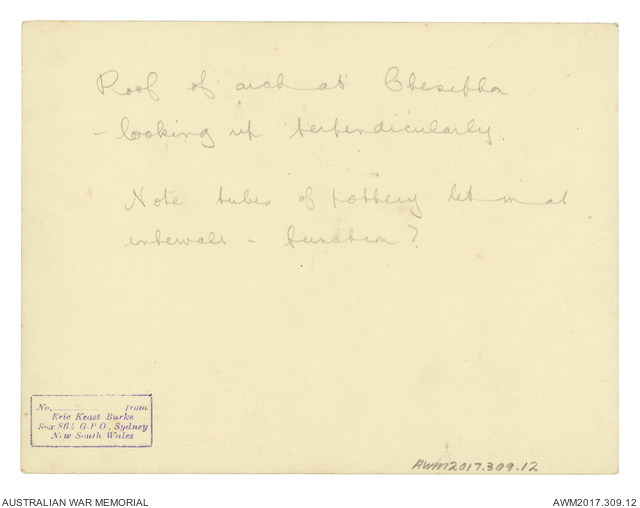 Roof of arch at Ctesiphon
- looking up perpendicularly.
Note tubes of pottery let in at
intervals - function?
No. from
Eric Keast Burke
Box 864 G.P.O., Sydney
New South Wales
AWM2017.309.12
AUSTRALIAN WAR MEMORIAL
AWM2017.309.12